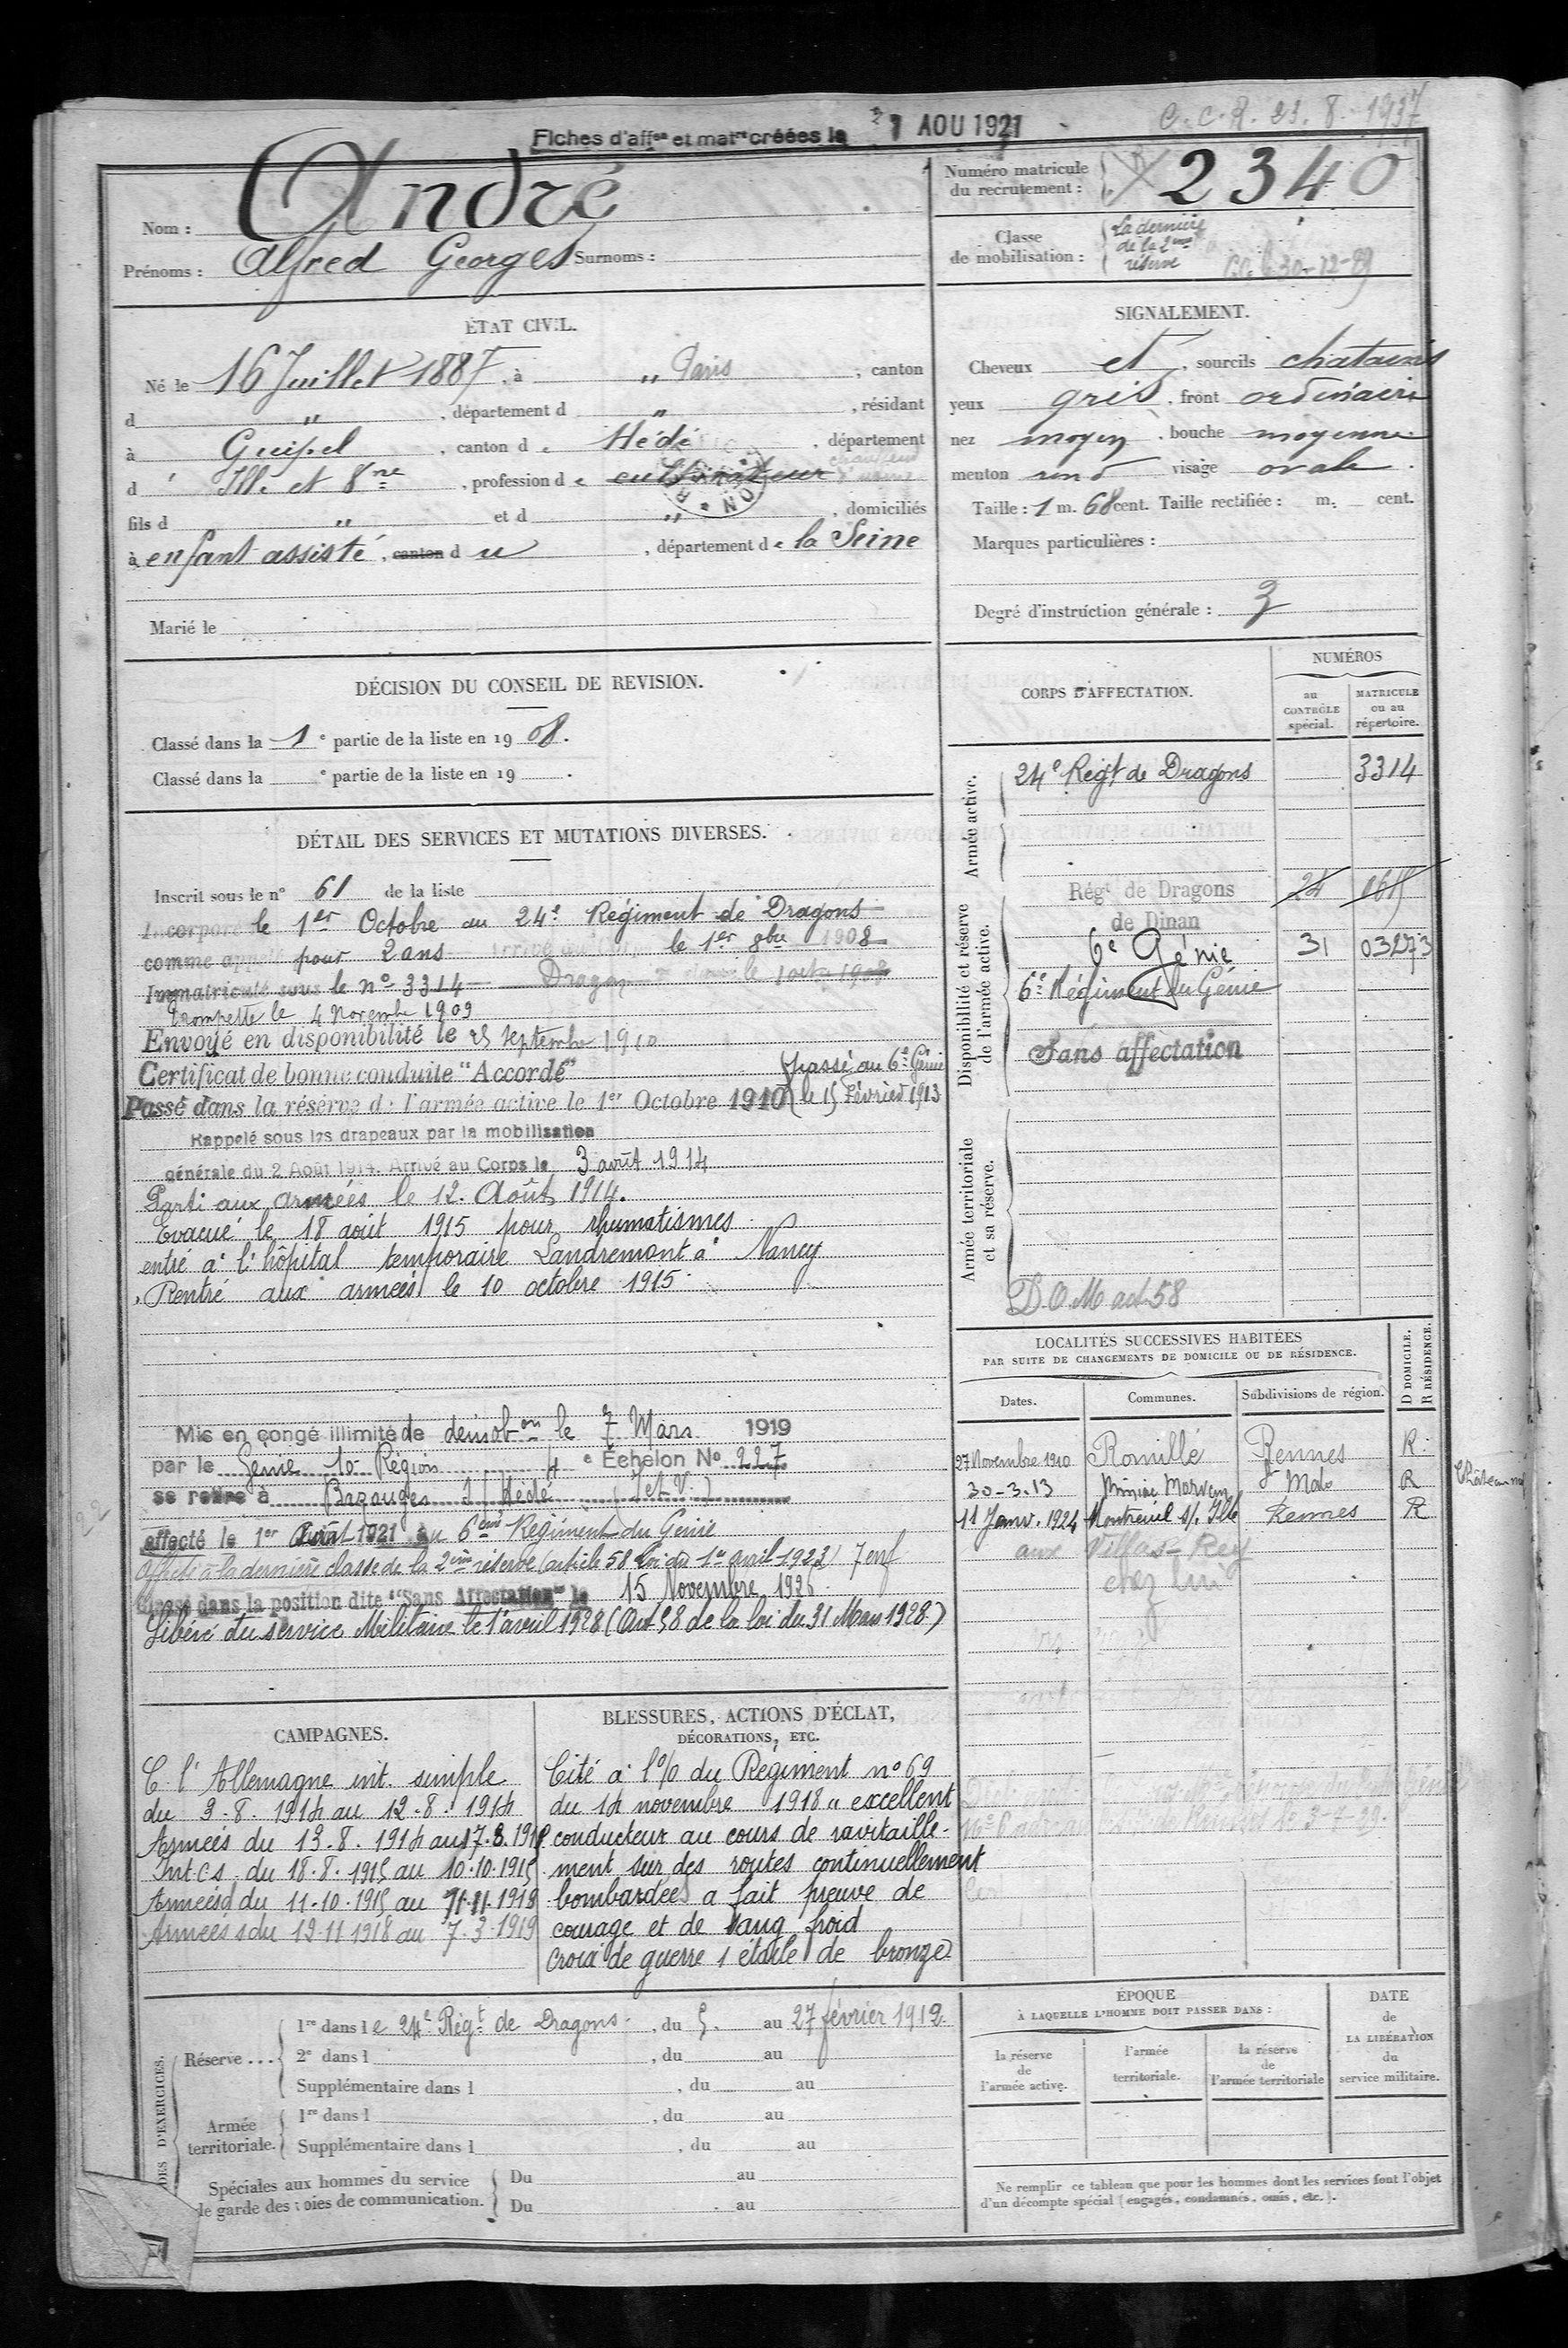 Fiches d'affon et matre créées le 21 AOU 1921
C.C.R. 23.8.1937
Nom : André
Prénoms : Alfred Georges Surnoms :
Numéro matricule du recrutement : 2340
Classe de mobilisation : La dernière de la 2ème réserve
ÉTAT CIVIL.
Né le 16 Juillet 1887, à " Paris, canton
d " , département d " , résidant
à Guipel, canton de Hédé, département
d' Ille et Vne, profession de cultivateur
fils d " et d " , domiciliés
à enfant assisté, canton d u , département de la Seine
Marié le
SIGNALEMENT.
Cheveux et , sourcils chatains
yeux gris, front ordinaire
nez moyen, bouche moyenne
menton rond visage ovale.
Taille : 1 m. 68 cent. Taille rectifiée : m. cent.
Marques particulières :
Degré d'instruction générale : 3
DÉCISION DU CONSEIL DE REVISION.
Classé dans la 1e partie de la liste en 1908.
Classé dans la e partie de la liste en 19 .
DÉTAIL DES SERVICES ET MUTATIONS DIVERSES.
Inscrit sous le n° 61 de la liste
Incorporé le 1er Octobre au 24e Régiment de Dragons
comme appelé pour 2 ans arrivé au Corps le 1er 8bre 1908
Immatriculé sous le n° 3314 Dragon de 2e classe le 1 oct 1908
trompette le 4 Novembre 1909
Envoyé en disponibilité le 25 septembre 1910
Certificat de bonne conduite "Accordé"
Passé dans la réserve de l'armée active le 1er Octobre 1910
passé au 6e Génie
le 15 Février 1913
Rappelé sous les drapeaux par la mobilisation
générale du 2 Août 1914. Arrivé au Corps le 3 août 1914
Parti aux armées le 12. Août 1914.
Evacué le 18 août 1915 pour rhumatismes
entré à l'hôpital temporaire Landremont à Nancy
Rentré aux armées le 10 octobre 1915
Mis en congé illimité de démobon le 7 Mars 1919
par le Génie 10e Région 4e Échelon N° 227
se retire à Bazouges s/ Hédé (I et V.)
affecté le 1er Août 1921 au 6ème Régiment du Génie
Affecté à la dernière classe de la 2ème réserve (article 58 loi du 1er avril 1923) 7 enf
Classé dans la position dite "Sans Affectation" le 15 Novembre 1926
Libéré du service Militaire le 1er avril 1928 (Art 58 de la loi du 31 Mars 1928.)
CORPS D'AFFECTATION.
NUMÉROS
au CONTRÔLE spécial.
MATRICULE ou au répertoire.
Armée active.
24e Régt de Dragons 3314
Disponibilité et réserve de l'armée active.
Régt de Dragons 24
de Dinan
6e Génie 31 03273
6e Régiment du Génie
Sans affectation
Armée territoriale et sa réserve.
D.O.M art 58
LOCALITÉS SUCCESSIVES HABITÉES
PAR SUITE DE CHANGEMENTS DE DOMICILE OU DE RÉSIDENCE.
Dates. Communes. Subdivisions de région. D DOMICILE. R RÉSIDENCE.
27 Novembre 1910 Romillé Rennes R.
30-3.13 Miniac Morvan St Malo R
11 Janv. 1924 Montreuil s/. Ille Rennes R
aux Villas-Rey
chez lui
CAMPAGNES.
C. l'Allemagne int. simple
du 3.8.1914 au 12.8.1914
Armées du 13.8.1914 au 17.8.1915
Int. cs du 18.8.1915 au 10.10.1915
Armées d du 11-10.1915 au 11.11.1918
Armées s du 12-11 1918 au 7.3.1919
BLESSURES, ACTIONS D'ÉCLAT,
DÉCORATIONS, ETC.
Cité à l'o/o du Régiment n° 69
du 14 novembre 1918 " excellent
conducteur au cours de ravitaille-
ment sur des routes continuellement
bombardées a fait preuve de
courage et de sang froid
Croix de guerre 1 étoile de bronze
DES D'EXERCICES.
Réserve ...
1re dans le 24e Régt de Dragons, du 5. au 27 février 1912.
2e dans l , du au
Supplémentaire dans l , du au
Armée territoriale.
1re dans l , du au
Supplémentaire dans l , du au
Spéciales aux hommes du service
de garde des voies de communication.
Du au
Du au
ÉPOQUE
À LAQUELLE L'HOMME DOIT PASSER DANS :
la réserve de l'armée active.
l'armée territoriale.
la réserve de l'armée territoriale
DATE de LA LIBÉRATION du service militaire.
Ne remplir ce tableau que pour les hommes dont les services font l'objet
d'un décompte spécial (engagés, condamnés, omis, etc.).